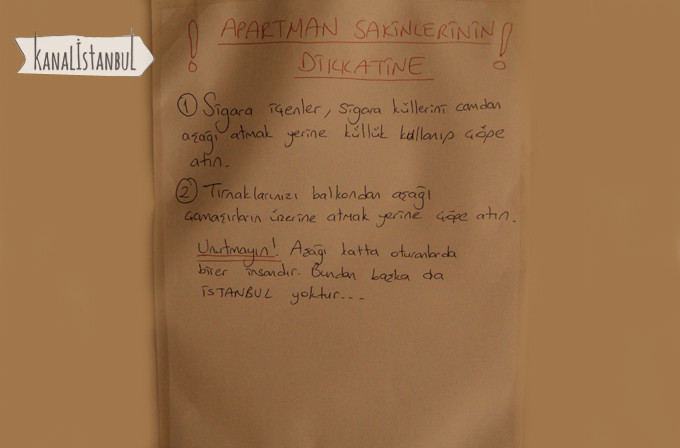 KANALİSTANBUL
! APARTMAN SAKİNLERİNİN !
DİKKATİNE
1 Sigara içenler, sigara küllerini camdan
aşağı atmak yerine küllük kullanıp çöpe
atın.
2 Tırnaklarınızı balkondan aşağı
çamaşırların üzerine atmak yerine çöpe atın.
Unutmayın! Aşağı katta oturanlarda
birer insandır. Bundan başka da
İSTANBUL yoktur...